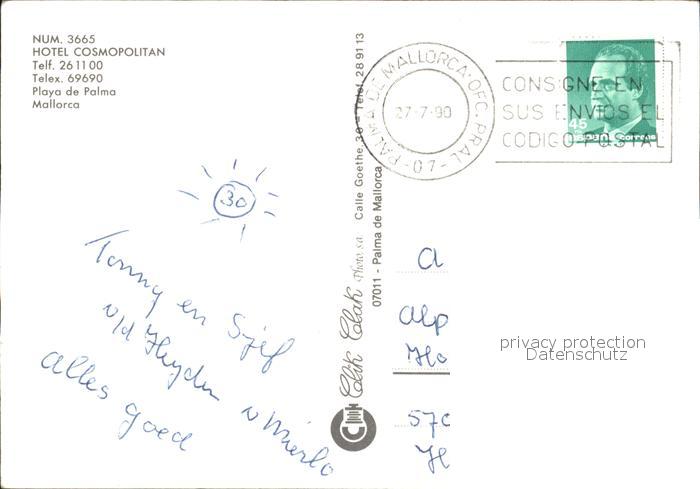 NUM. 3665
HOTEL COSMOPOLITAN
Telf. 26 11 00
Telex. 69690
Playa de Palma
Mallorca
30
Tonny en Sjef
v/d Heyden
v Mierlo
alles goed
Clik Clak Photo, s.a. Calle Goethe, 30 – Telef. 28 91 13
07011 - Palma de Mallorca
PALMA DE MALLORCA·OFC. PRAL
27-7-90
-07-
CONSIGNE EN
SUS ENVIOS EL
CODIGO POSTAL
45
correos
a
alp
Ho
570
H
privacy protection
Datenschutz